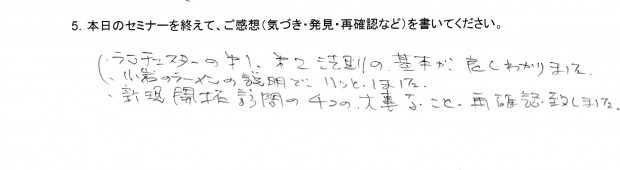 5. 本日のセミナーを終えて、ご感想（気づき・発見・再確認など）を書いてください。
・ランチェスターの第1、第2法則の基本が良くわかりました。
・小岩のラーメンの説明でピンときました。
・新規開拓訪問の4つの大事なこと、再確認致しました。